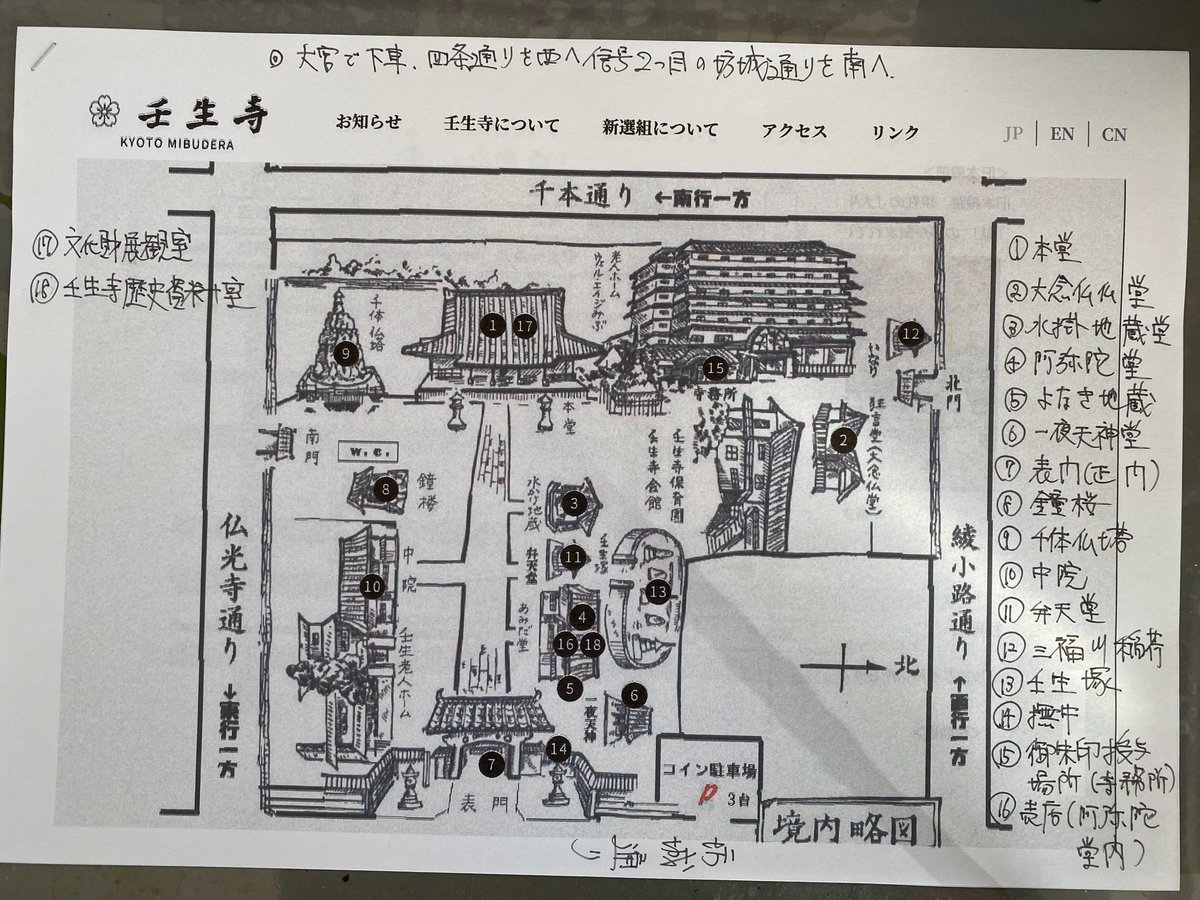 ◎ 大宮で下車、四条通りを西へ信号2つ目の坊城通りを南へ.
壬生寺
KYOTO MIBUDERA
お知らせ
壬生寺について
新選組について
アクセス
リンク
JP | EN | CN
千本通り ←南行一方
⑰ 文化財展観室
⑱ 壬生寺歴史資料室
① 本堂
② 大念仏仏堂
③ 水掛地蔵堂
④ 阿弥陀堂
⑤ よなき地蔵
⑥ 一夜天神堂
⑦ 表門(正門)
⑧ 鐘楼
⑨ 千体仏塔
⑩ 中院
⑪ 弁天堂
⑫ 三福川稲荷
⑬ 壬生塚
⑭ 撫牛
⑮ 御朱印授与
場所(寺務所)
⑯ 売店(阿弥陀
堂内)
老人ホーム
ウェルエイジみぶ
千体仏塔
1
17
9
12
15
寺務所
いなり
北門
本堂
南門
W.C.
8
鐘楼
2
狂言堂(大念仏堂)
壬生寺保育園
壬生寺会館
水かけ地蔵
3
弁天堂
11
壬生塚
13
中院
10
あみだ堂
4
16
18
5
6
一夜天神
壬生老人ホーム
7
14
表門
北
コイン駐車場
P 3台
境内略図
仏光寺通り
↓東行一方
綾小路通り
↑西行一方
坊城通り